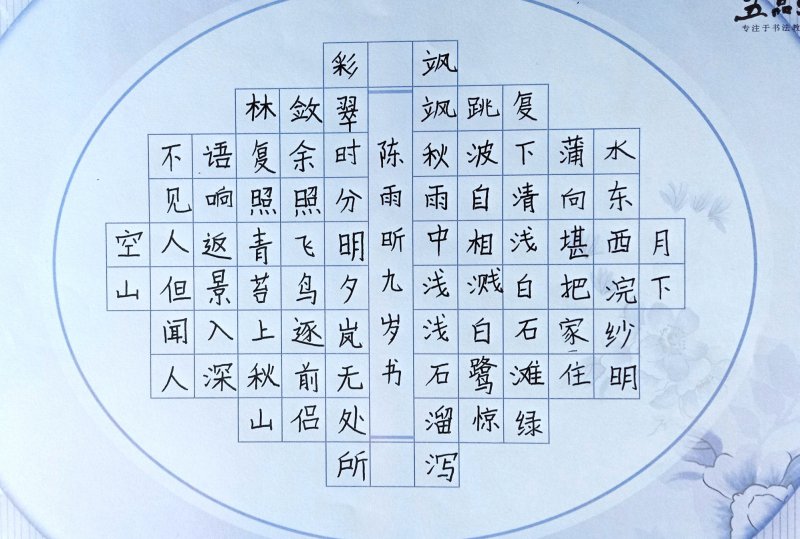 空山
不见人但闻人
语响返景入深
林复照青苔上秋山
敛余照飞鸟逐前侣
彩翠时分明夕岚无处所
陈雨昕九岁书
飒飒秋雨中浅浅石溜泻
跳波自相溅白鹭惊
复下清浅白石滩绿
蒲向堪把家住
水东西浣纱明
月下
专注于书法教